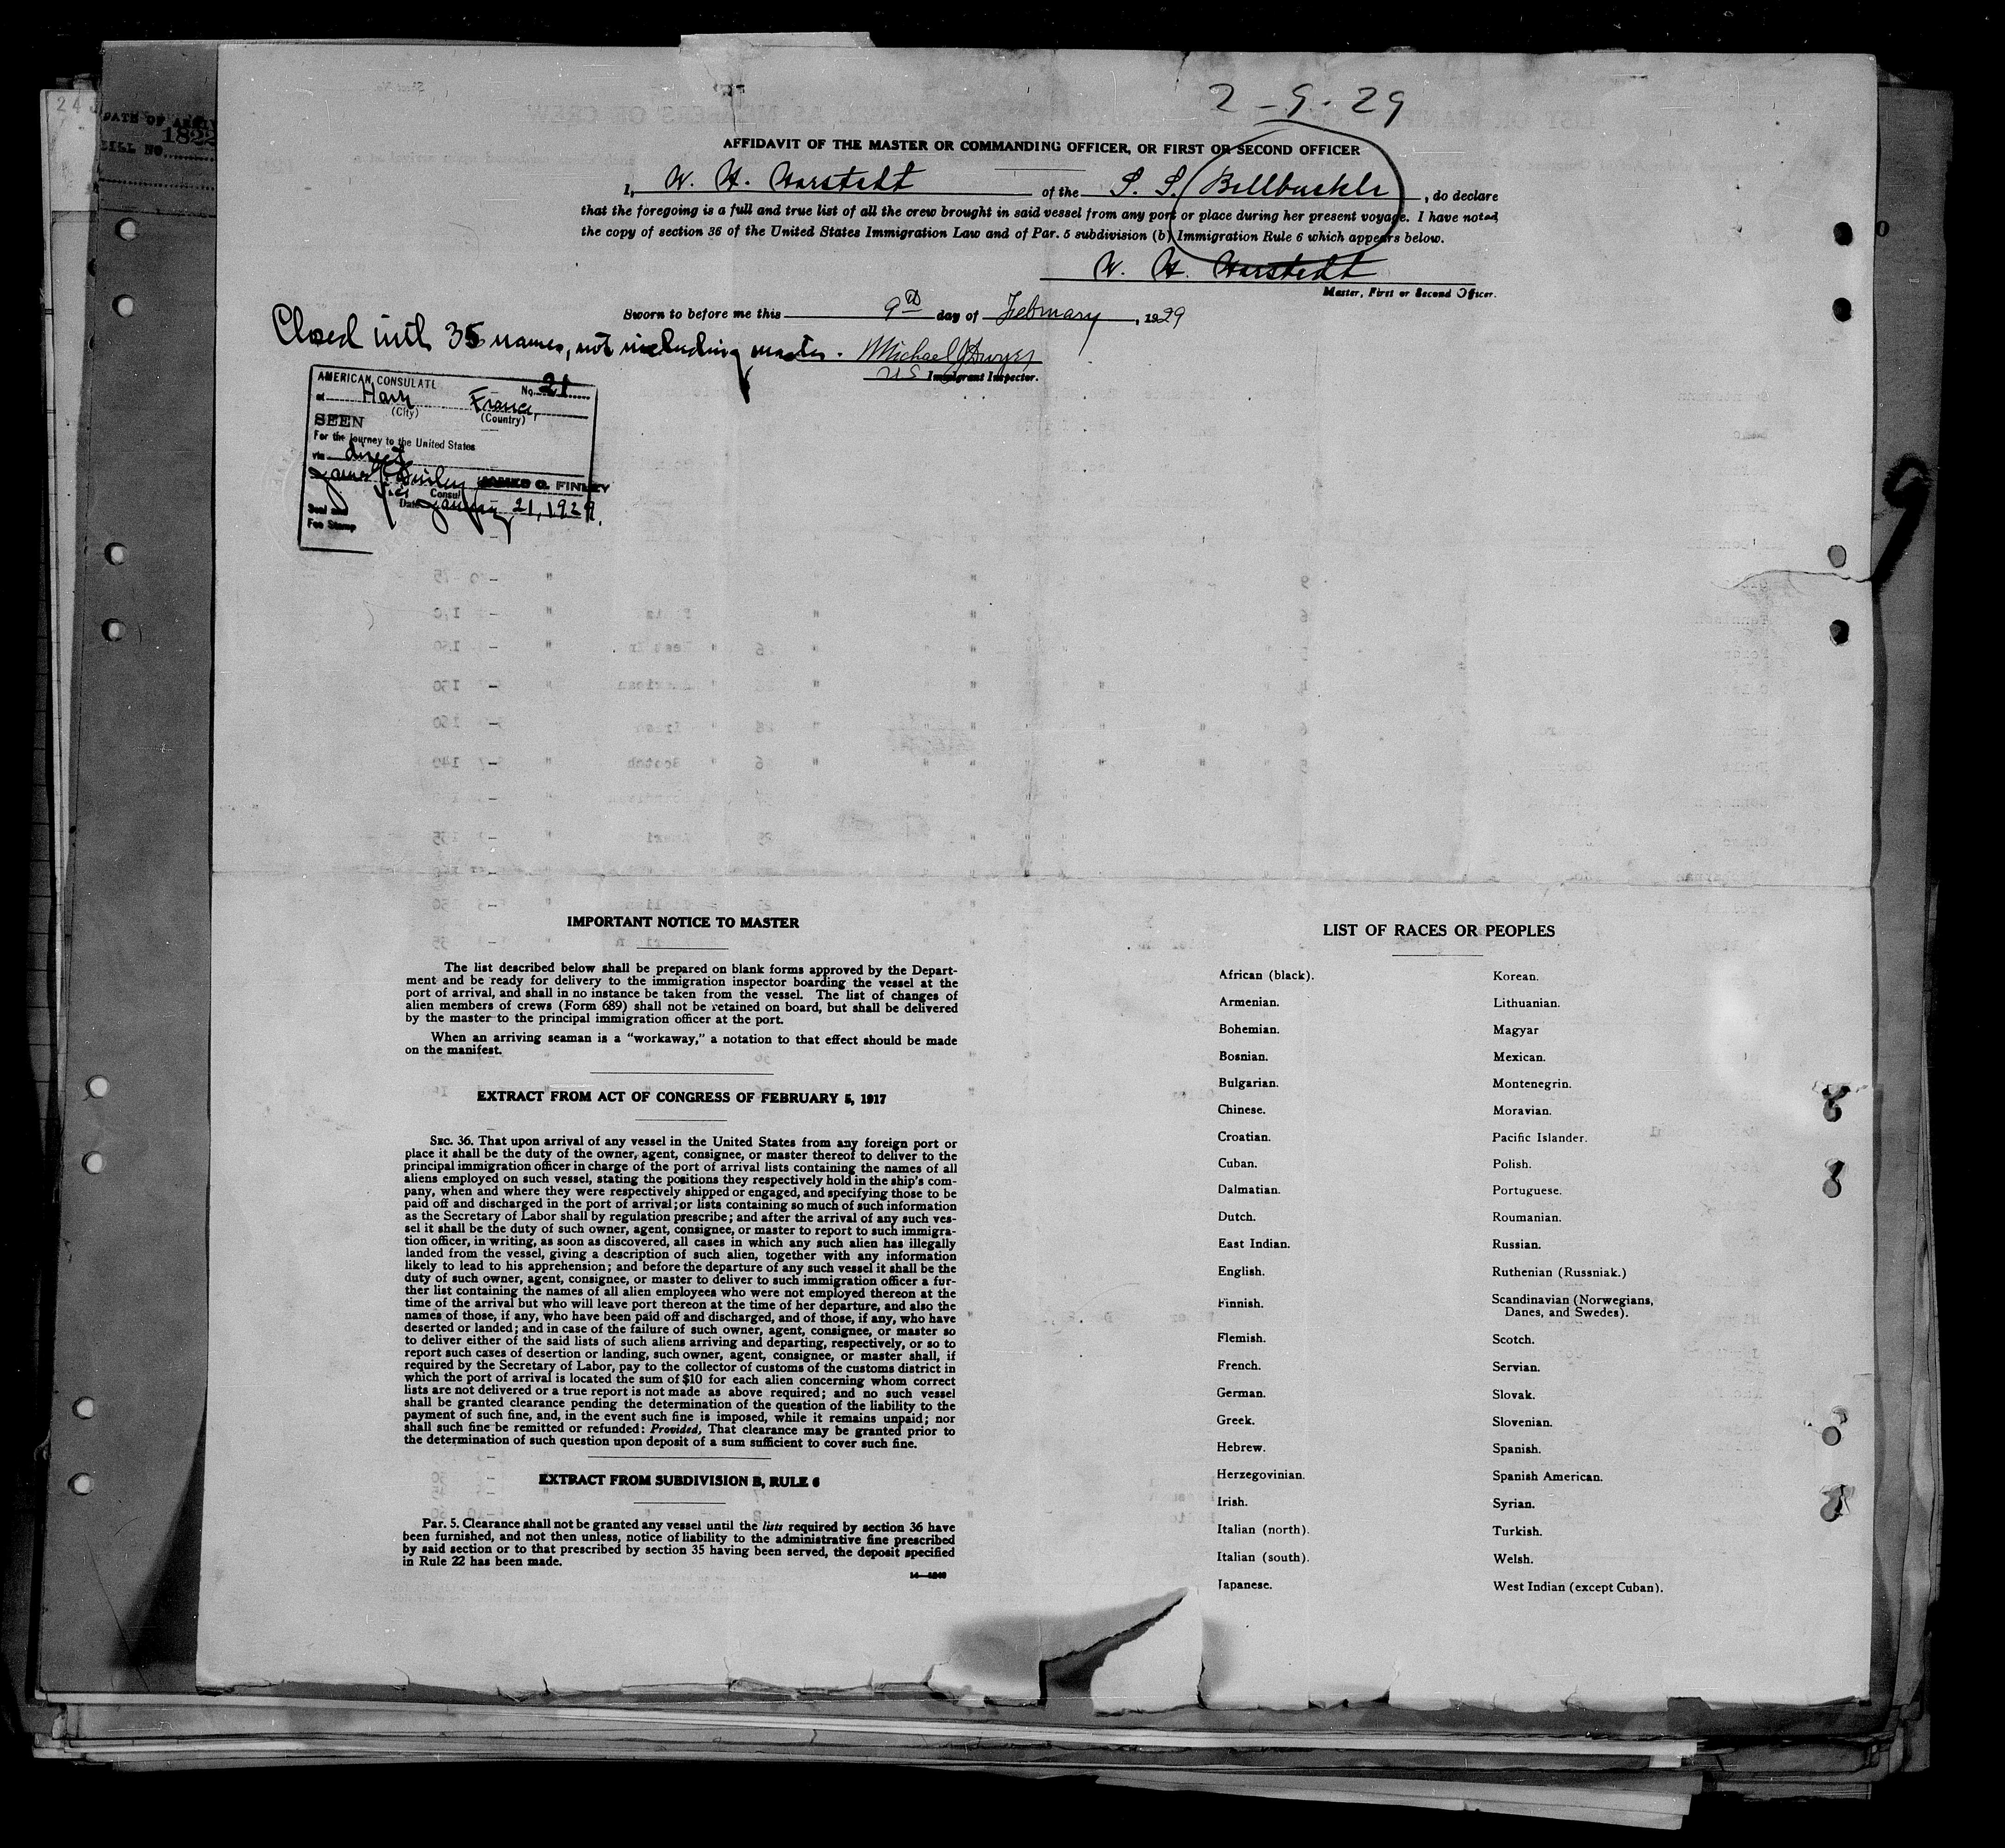 2-9-29
DATE OF ARRIV
1822
BILL NO
AFFIDAVIT OF THE MASTER OR COMMANDING OFFICER, OR FIRST OR SECOND OFFICER
I, W. H. Harstedt of the S. S. Bellbuckle, do declare
that the foregoing is a full and true list of all the crew brought in said vessel from any port or place during her present voyage. I have noted
the copy of section 36 of the United States Immigration Law and of Par. 5 subdivision (b) Immigration Rule 6 which appears below.
W. H. Harstedt
Master, First or Second Officer.
Sworn to before me this 9th day of February, 1929
Closed with 35 names, not including master. Michael J Dwyer
US Immigrant Inspector.
AMERICAN CONSULATE
No. 21
at Havre France,
(City) (Country)
SEEN
For the journey to the United States
via direct
James G. Finley JAMES G. FINLEY
Vice Consul
Date January 21, 1929.
Seal and
Fee Stamp
9
IMPORTANT NOTICE TO MASTER
The list described below shall be prepared on blank forms approved by the Depart-
ment and be ready for delivery to the immigration inspector boarding the vessel at the
port of arrival, and shall in no instance be taken from the vessel. The list of changes of
alien members of crews (Form 689) shall not be retained on board, but shall be delivered
by the master to the principal immigration officer at the port.
When an arriving seaman is a "workaway," a notation to that effect should be made
on the manifest.
EXTRACT FROM ACT OF CONGRESS OF FEBRUARY 5, 1917
SEC. 36. That upon arrival of any vessel in the United States from any foreign port or
place it shall be the duty of the owner, agent, consignee, or master thereof to deliver to the
principal immigration officer in charge of the port of arrival lists containing the names of all
aliens employed on such vessel, stating the positions they respectively hold in the ship's com-
pany, when and where they were respectively shipped or engaged, and specifying those to be
paid off and discharged in the port of arrival; or lists containing so much of such information
as the Secretary of Labor shall by regulation prescribe; and after the arrival of any such ves-
sel it shall be the duty of such owner, agent, consignee, or master to report to such immigra-
tion officer, in writing, as soon as discovered, all cases in which any such alien has illegally
landed from the vessel, giving a description of such alien, together with any information
likely to lead to his apprehension; and before the departure of any such vessel it shall be the
duty of such owner, agent, consignee, or master to deliver to such immigration officer a fur-
ther list containing the names of all alien employees who were not employed thereon at the
time of the arrival but who will leave port thereon at the time of her departure, and also the
names of those, if any, who have been paid off and discharged, and of those, if any, who have
deserted or landed; and in case of the failure of such owner, agent, consignee, or master so
to deliver either of the said lists of such aliens arriving and departing, respectively, or so to
report such cases of desertion or landing, such owner, agent, consignee, or master shall, if
required by the Secretary of Labor, pay to the collector of customs of the customs district in
which the port of arrival is located the sum of $10 for each alien concerning whom correct
lists are not delivered or a true report is not made as above required; and no such vessel
shall be granted clearance pending the determination of the question of the liability to the
payment of such fine, and, in the event such fine is imposed, while it remains unpaid; nor
shall such fine be remitted or refunded: Provided, That clearance may be granted prior to
the determination of such question upon deposit of a sum sufficient to cover such fine.
EXTRACT FROM SUBDIVISION B, RULE 6
Par. 5. Clearance shall not be granted any vessel until the lists required by section 36 have
been furnished, and not then unless, notice of liability to the administrative fine prescribed
by said section or to that prescribed by section 35 having been served, the deposit specified
in Rule 22 has been made.
LIST OF RACES OR PEOPLES
African (black).
Armenian.
Bohemian.
Bosnian.
Bulgarian.
Chinese.
Croatian.
Cuban.
Dalmatian.
Dutch.
East Indian.
English.
Finnish.
Flemish.
French.
German.
Greek.
Hebrew.
Herzegovinian.
Irish.
Italian (north).
Italian (south).
Japanese.
Korean.
Lithuanian.
Magyar
Mexican.
Montenegrin.
Moravian.
Pacific Islander.
Polish.
Portuguese.
Roumanian.
Russian.
Ruthenian (Russniak.)
Scandinavian (Norwegians,
Danes, and Swedes).
Scotch.
Servian.
Slovak.
Slovenian.
Spanish.
Spanish American.
Syrian.
Turkish.
Welsh.
West Indian (except Cuban).